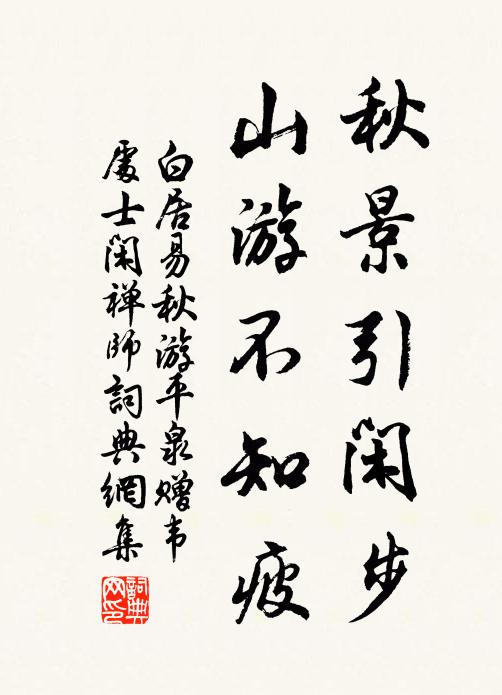 秋景引闲步
山游不知疲
白居易秋游平泉赠韦
處士閑禅師詞典網集
詞典
网印